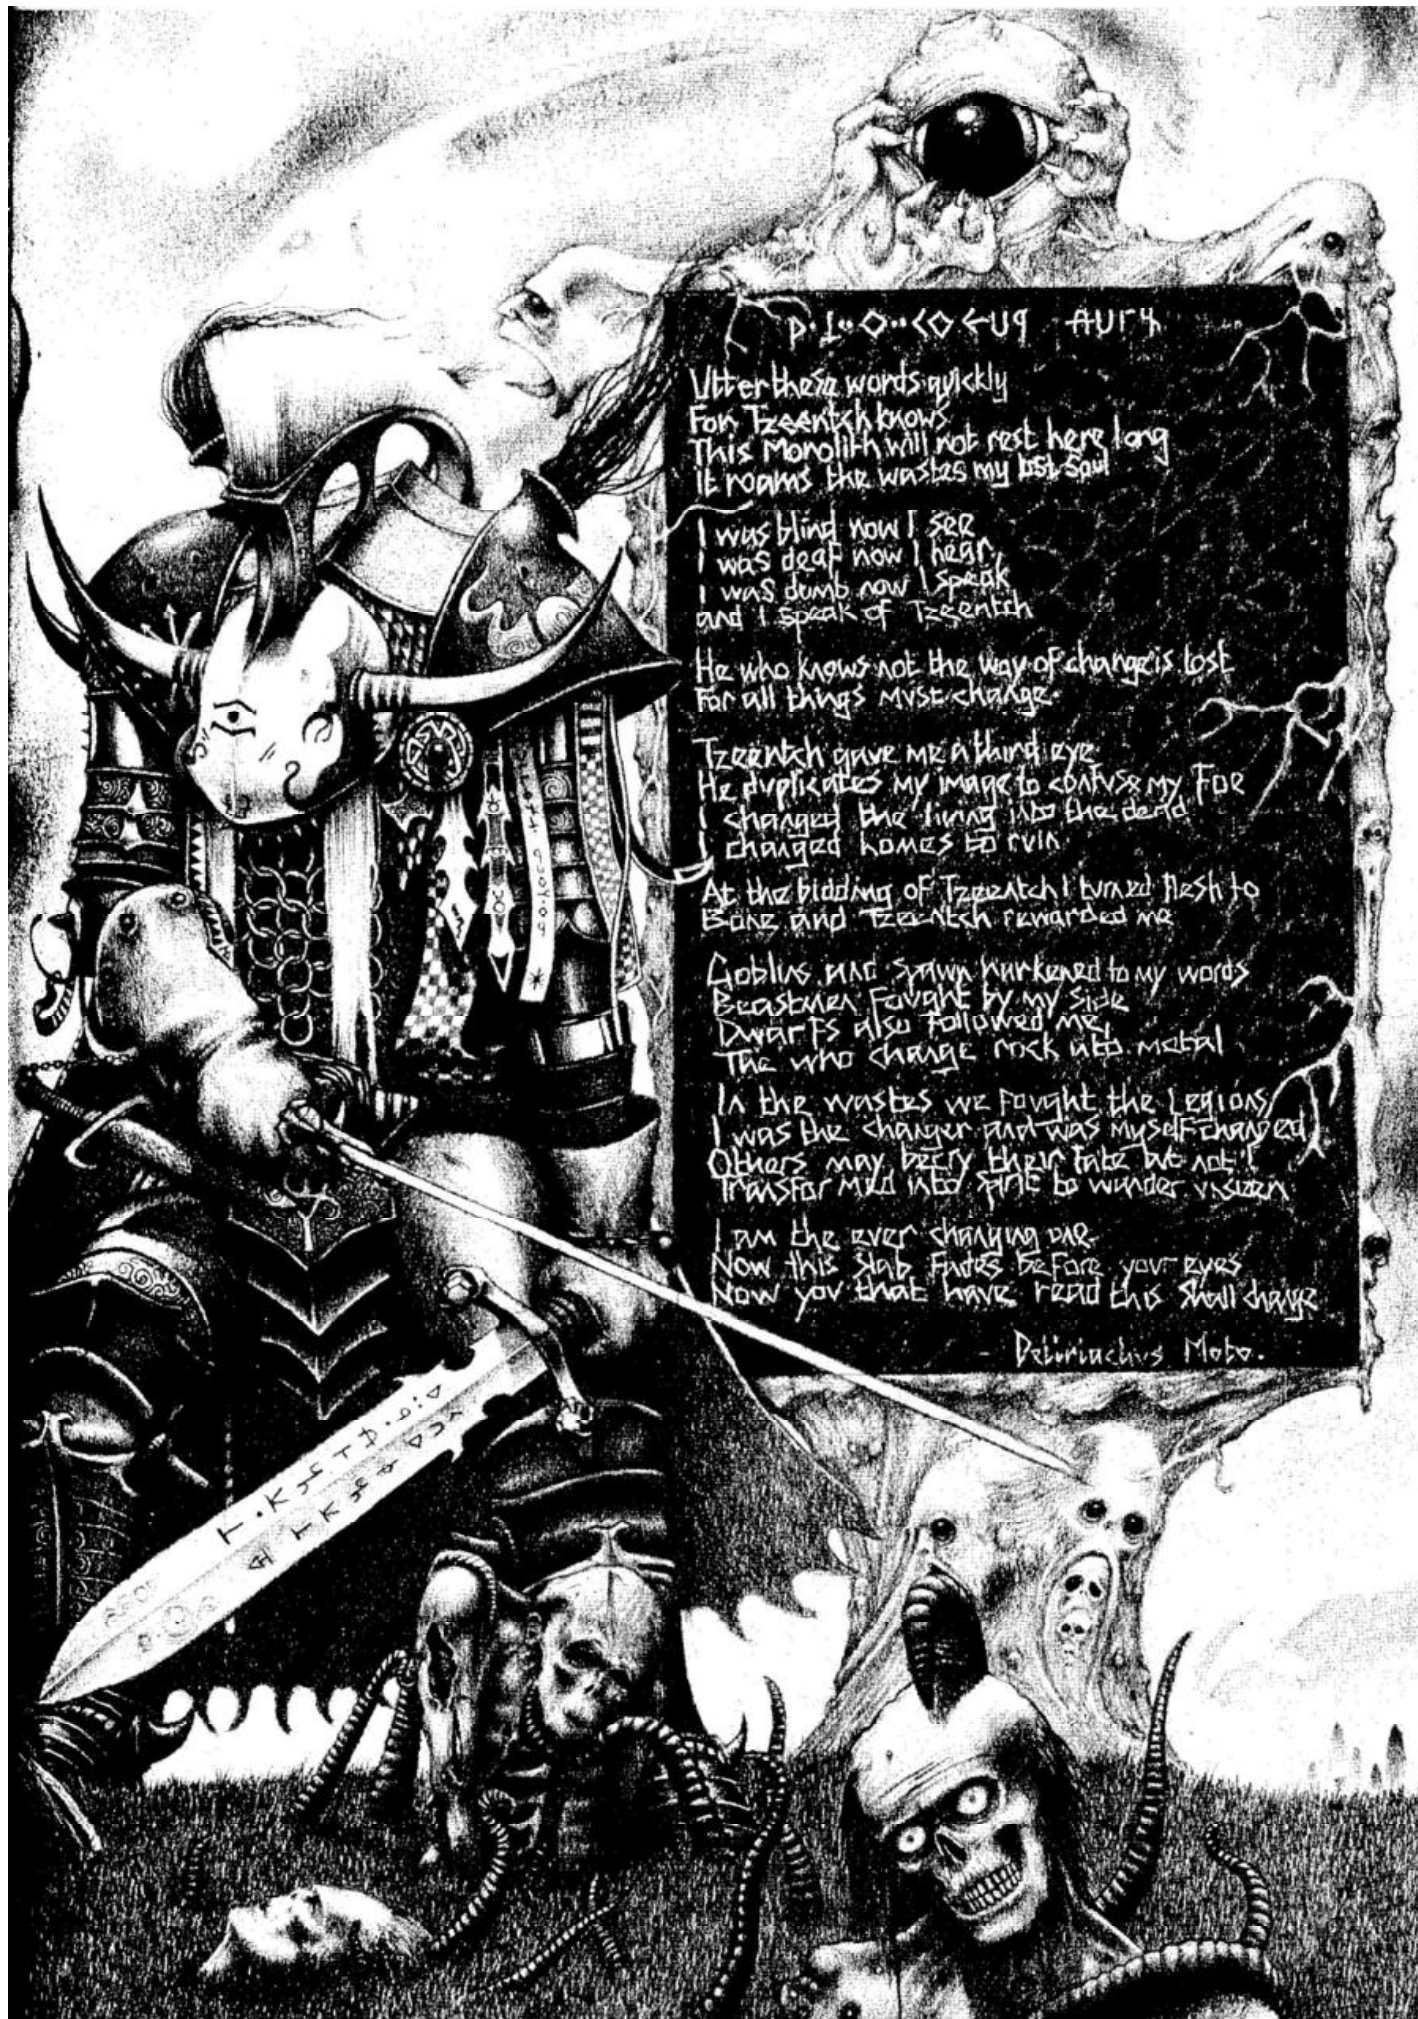 Utter these words quickly
For Tzeentch knows
This Monolith will not rest here long
It roams the wastes my lost soul
I was blind now I see
I was deaf now I hear,
I was dumb now I speak
and I speak of Tzeentch
He who knows not the way of change is lost
For all things must change.
Tzeentch gave me a third eye
He duplicates my image to confuse my Foe
I changed the living into the dead
I changed homes to ruin
At the bidding of Tzeentch I turned flesh to
Bone and Tzeentch rewarded me
Goblins and Spawn harkened to my words
Beastmen Fought by my side
Dwarfs also followed me,
The who change rock into metal
In the wastes we fought the Legions,
I was the changer and was myself changed
Others may decry their fate but not I
Transformed into spirit to wander
I am the ever changing one.
Now this slab fades before your eyes
Now you that have read this shall change
Moto.